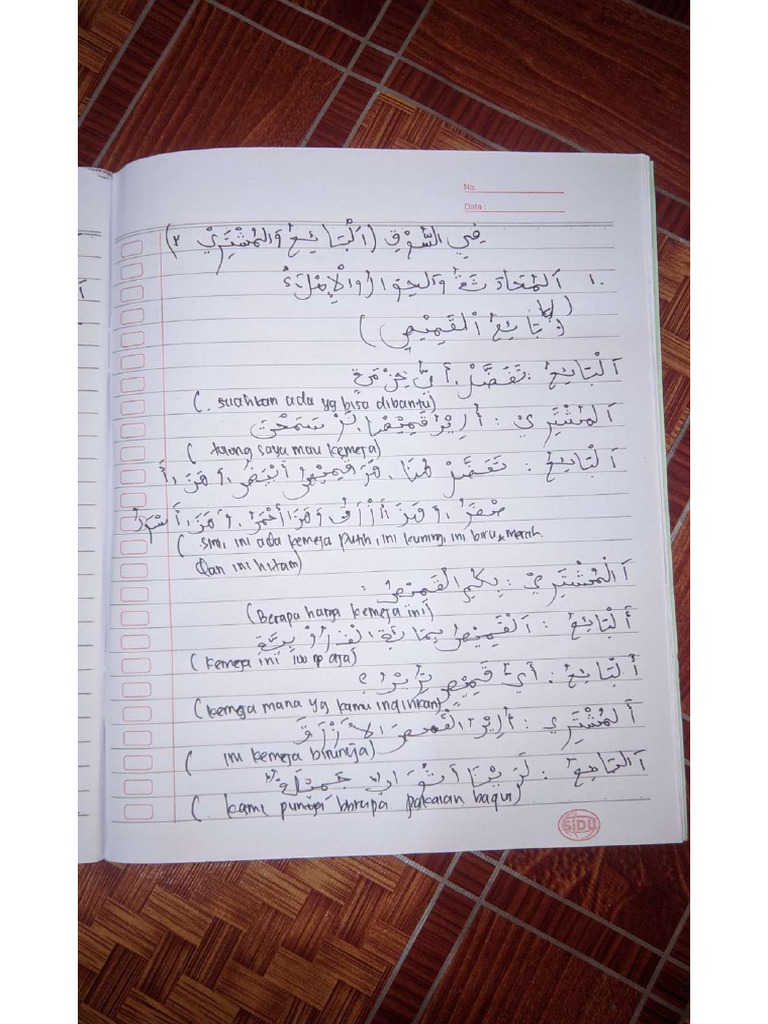 No.
Date :
فِي السُّوْقِ (اَلْبَائِعُ وَالمُشْتَرِيْ ٢)
١. اَلمُحَادَثَةُ وَالحِوَارُ وَالْإِمْلَاءُ
(بَائِعُ الْقَمِيْصِ)
اَلْبَائِعُ : تَفَضَّلْ، أَيُّ خِزْمَةٍ
( . suahkan ada yg bisa dibantu)
اَلمُشْتَرِيْ : أُرِيْدُ قَمِيْصًا، لَوْ سَمَحْتَ
( tolong saya mau kemeja)
اَلْبَائِعُ : تَفَضَّلْ هُنَا، هَذَا قَمِيْصٌ أَبْيَضُ، وَهَذَا أَ
صْفَرُ، وَهَذَا أَزْرَقُ، وَهَذَا أَحْمَرُ، وَهَذَا أَسْوَدُ
( sini, ini ada kemeja putih, ini kuning, ini biru & merah
dan ini hitam)
اَلْمُشْتَرِيْ : بِكَمِ القَمِيْصُ :
(Berapa harga kemeja ini)
أَلْبَائِعُ : اَلْقَمِيْصُ بِمِائَةِ الْفِ رُوْبِيَّةٍ
(kemeja ini 100 rp aja)
أَلْبَائِعُ : أَيَّ قَمِيْصٍ تُرِيْدُ ؟
(kemeja mana yg kamu inginkan)
أَلمُشْتَرِيْ : أُرِيْدُ الْقَمِيْصَ الأَزْرَقَ
( ini kemeja birunya)
اَلبَائِعُ : لَدَيْنَا أَثْوَابٌ جَمِيْلَةٌ
( kami punya brrupa pakaian bagus)
SiDU